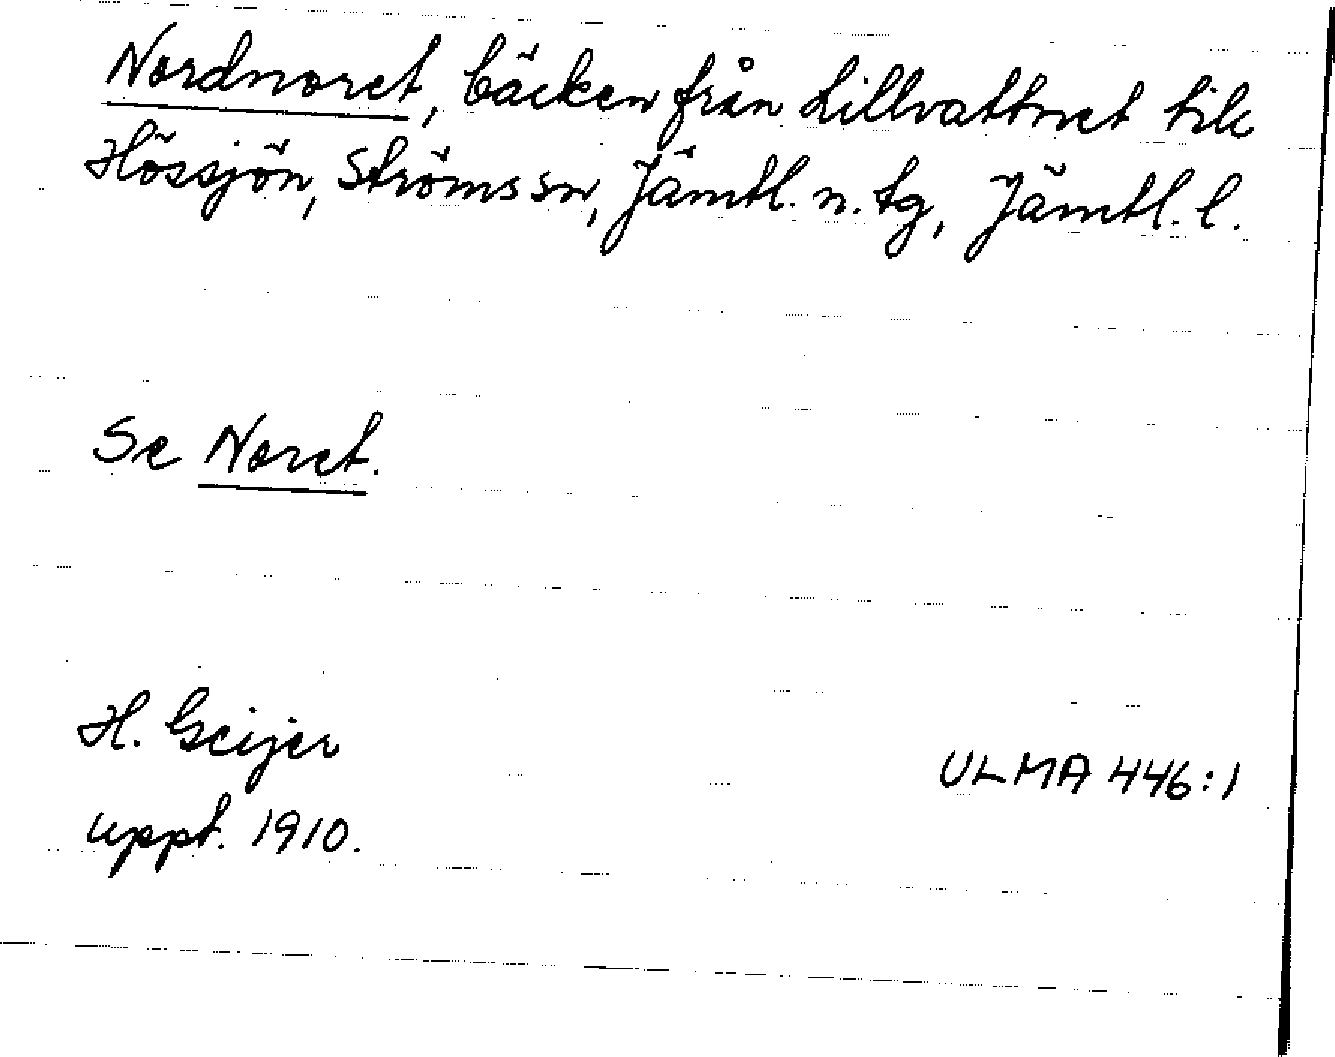 Nordnoret, bäcken från Lillvattnet till
Hössjön, Ströms sn, Jämtl. n. tg, Jämtl. l.
Se Noret.
H. Geijer
ULMA 446:1
uppt. 1910.